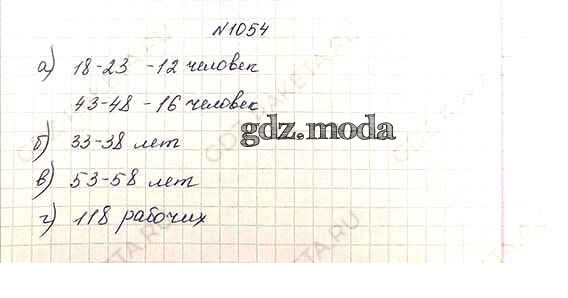 №1054
а) 18-23 - 12 человек
43-48 - 16 человек
gdz.moda
б) 33-38 лет
в) 53-58 лет
г) 118 рабочих